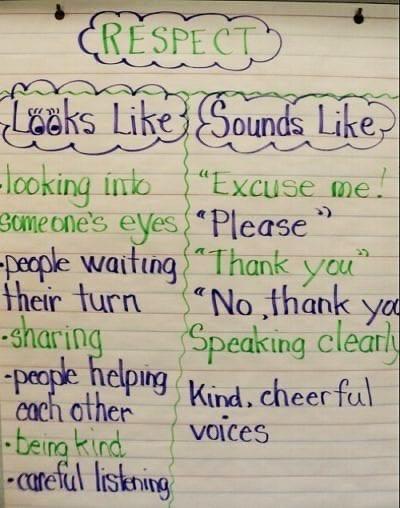 RESPECT
Looks Like
-looking into
someone's eyes
-people waiting
their turn
-sharing
-people helping
each other
-being kind
-careful listening
Sounds Like
"Excuse me!
"Please"
"Thank you"
"No, thank yo
Speaking clearly
Kind, cheerful
voices